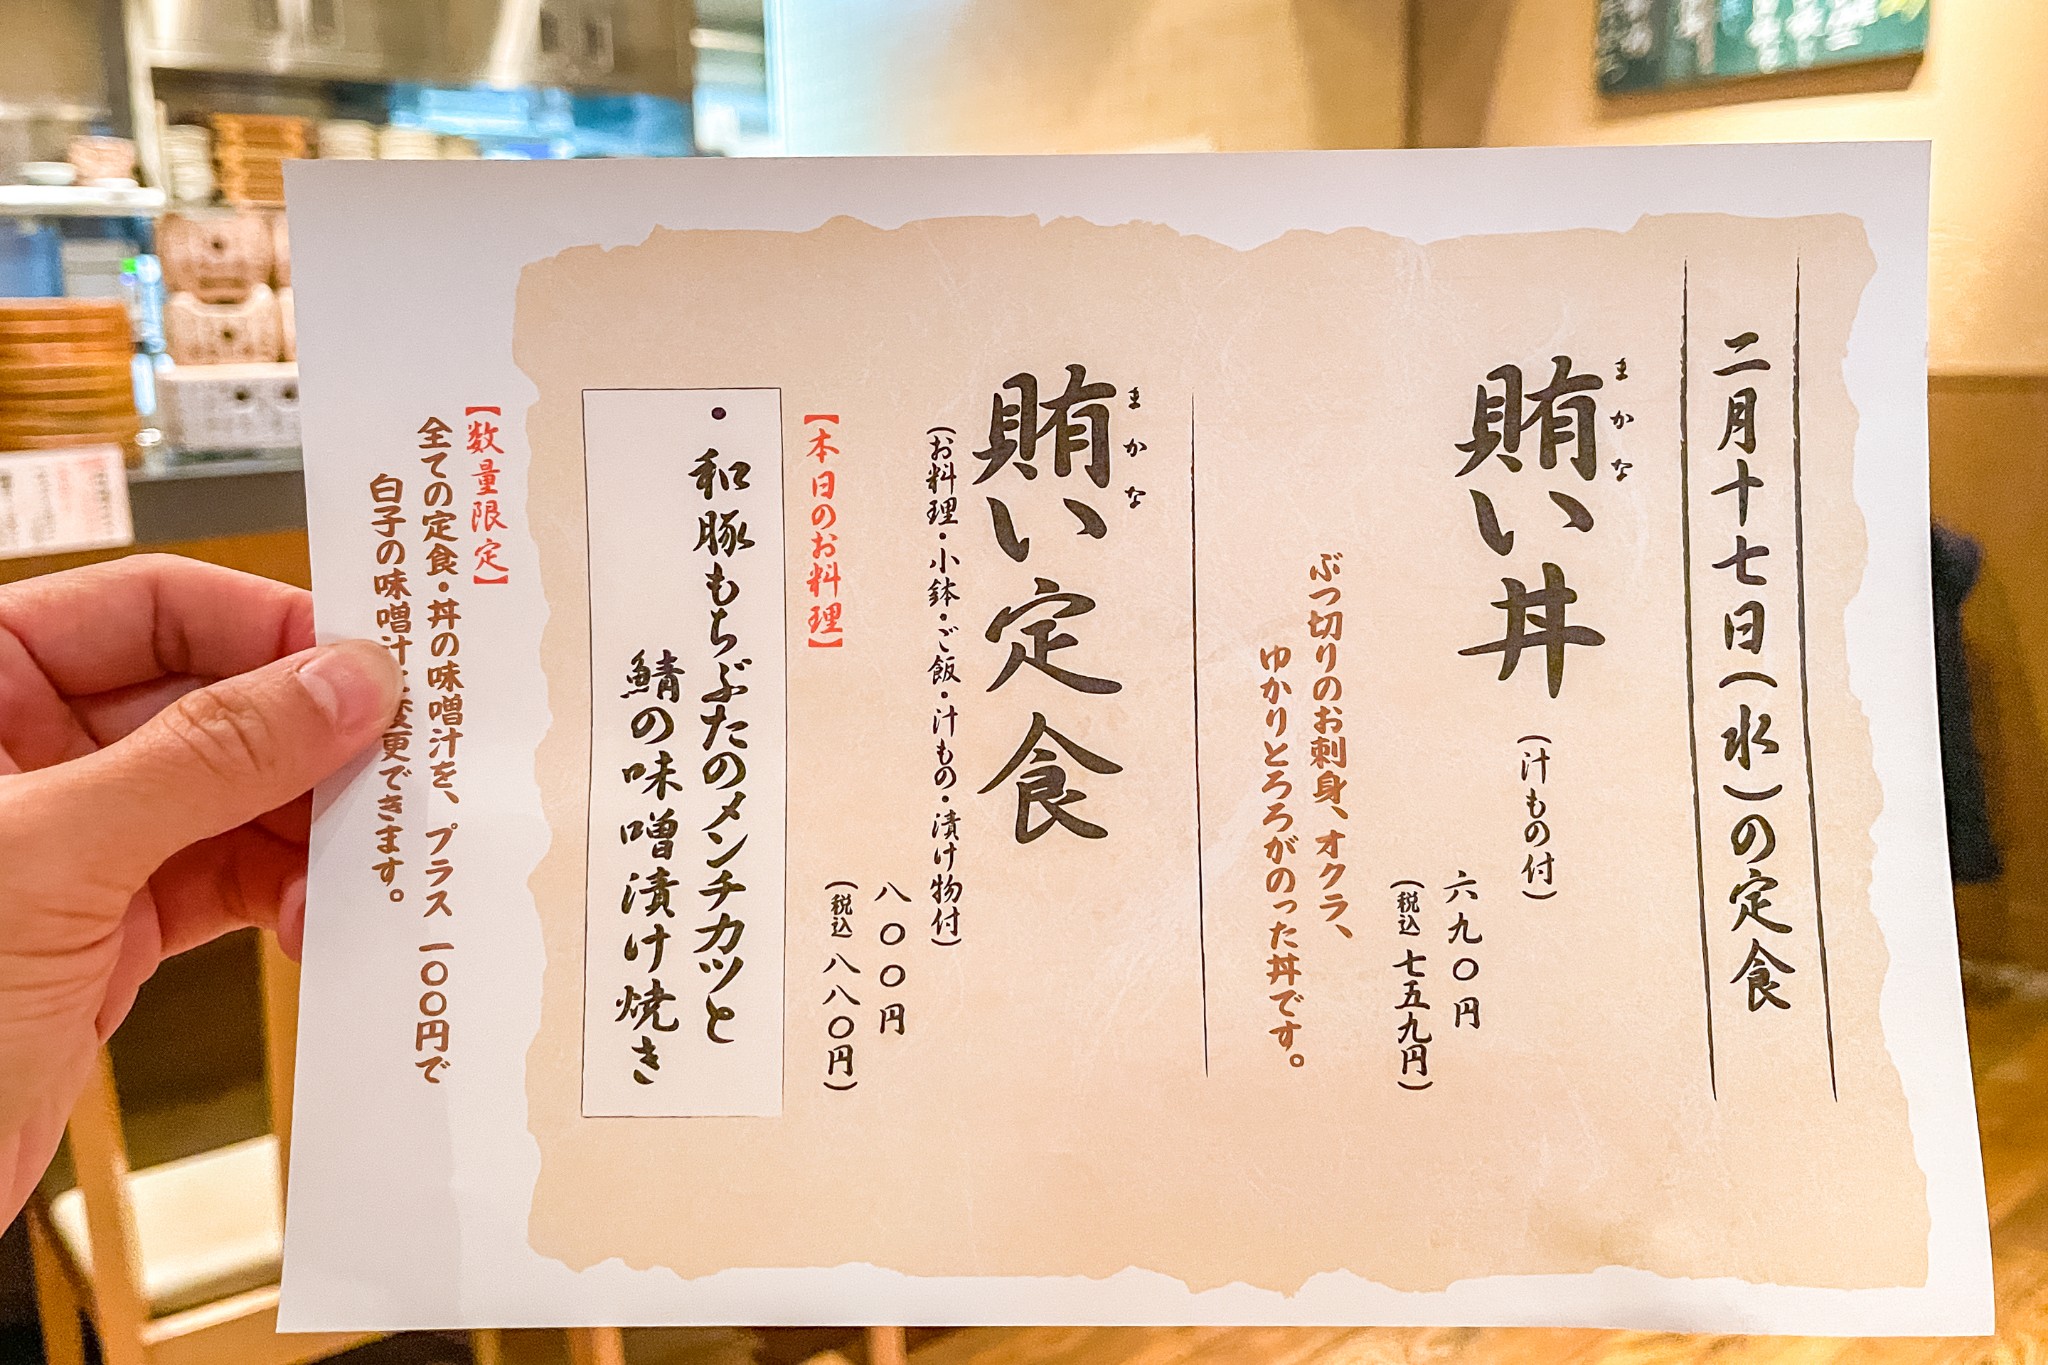 二月十七日(水)の定食
まかな
賄い丼
(汁もの付)
六九〇円
(税込 七五九円)
ぶつ切りのお刺身、オクラ、
ゆかりとろろがのった丼です。
まかな
賄い定食
(お料理・小鉢・ご飯・汁もの・漬け物付)
八〇〇円
(税込 八八〇円)
【本日のお料理】
・和豚もちぶたのメンチカツと
鯖の味噌漬け焼き
【数量限定】
全ての定食・丼の味噌汁を、プラス一〇〇円で
白子の味噌汁に変更できます。